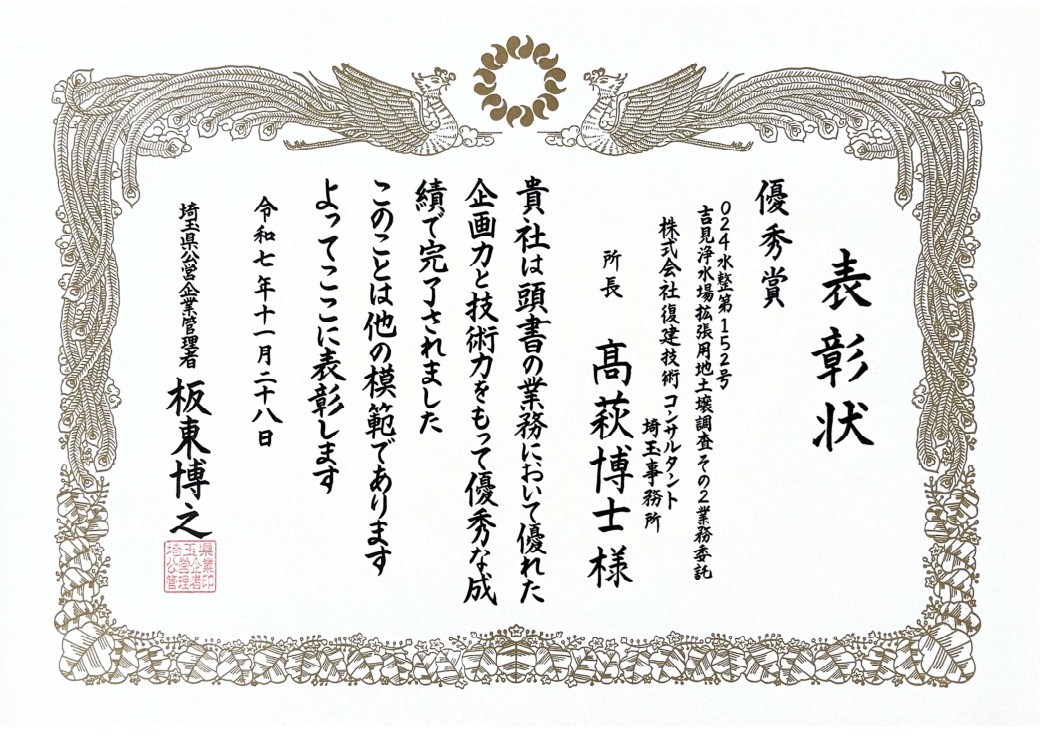 表彰状
優秀賞
024水整第152号
吉見浄水場拡張用地土壌調査その2業務委託
株式会社復建技術コンサルタント
埼玉事務所
所長　髙萩博士様
貴社は頭書の業務において優れた
企画力と技術力をもって優秀な成
績で完了されました
このことは他の模範であります
よってここに表彰します
令和七年十一月二十八日
埼玉県公営企業管理者　板東博之
埼玉県
公営企業
管理者印